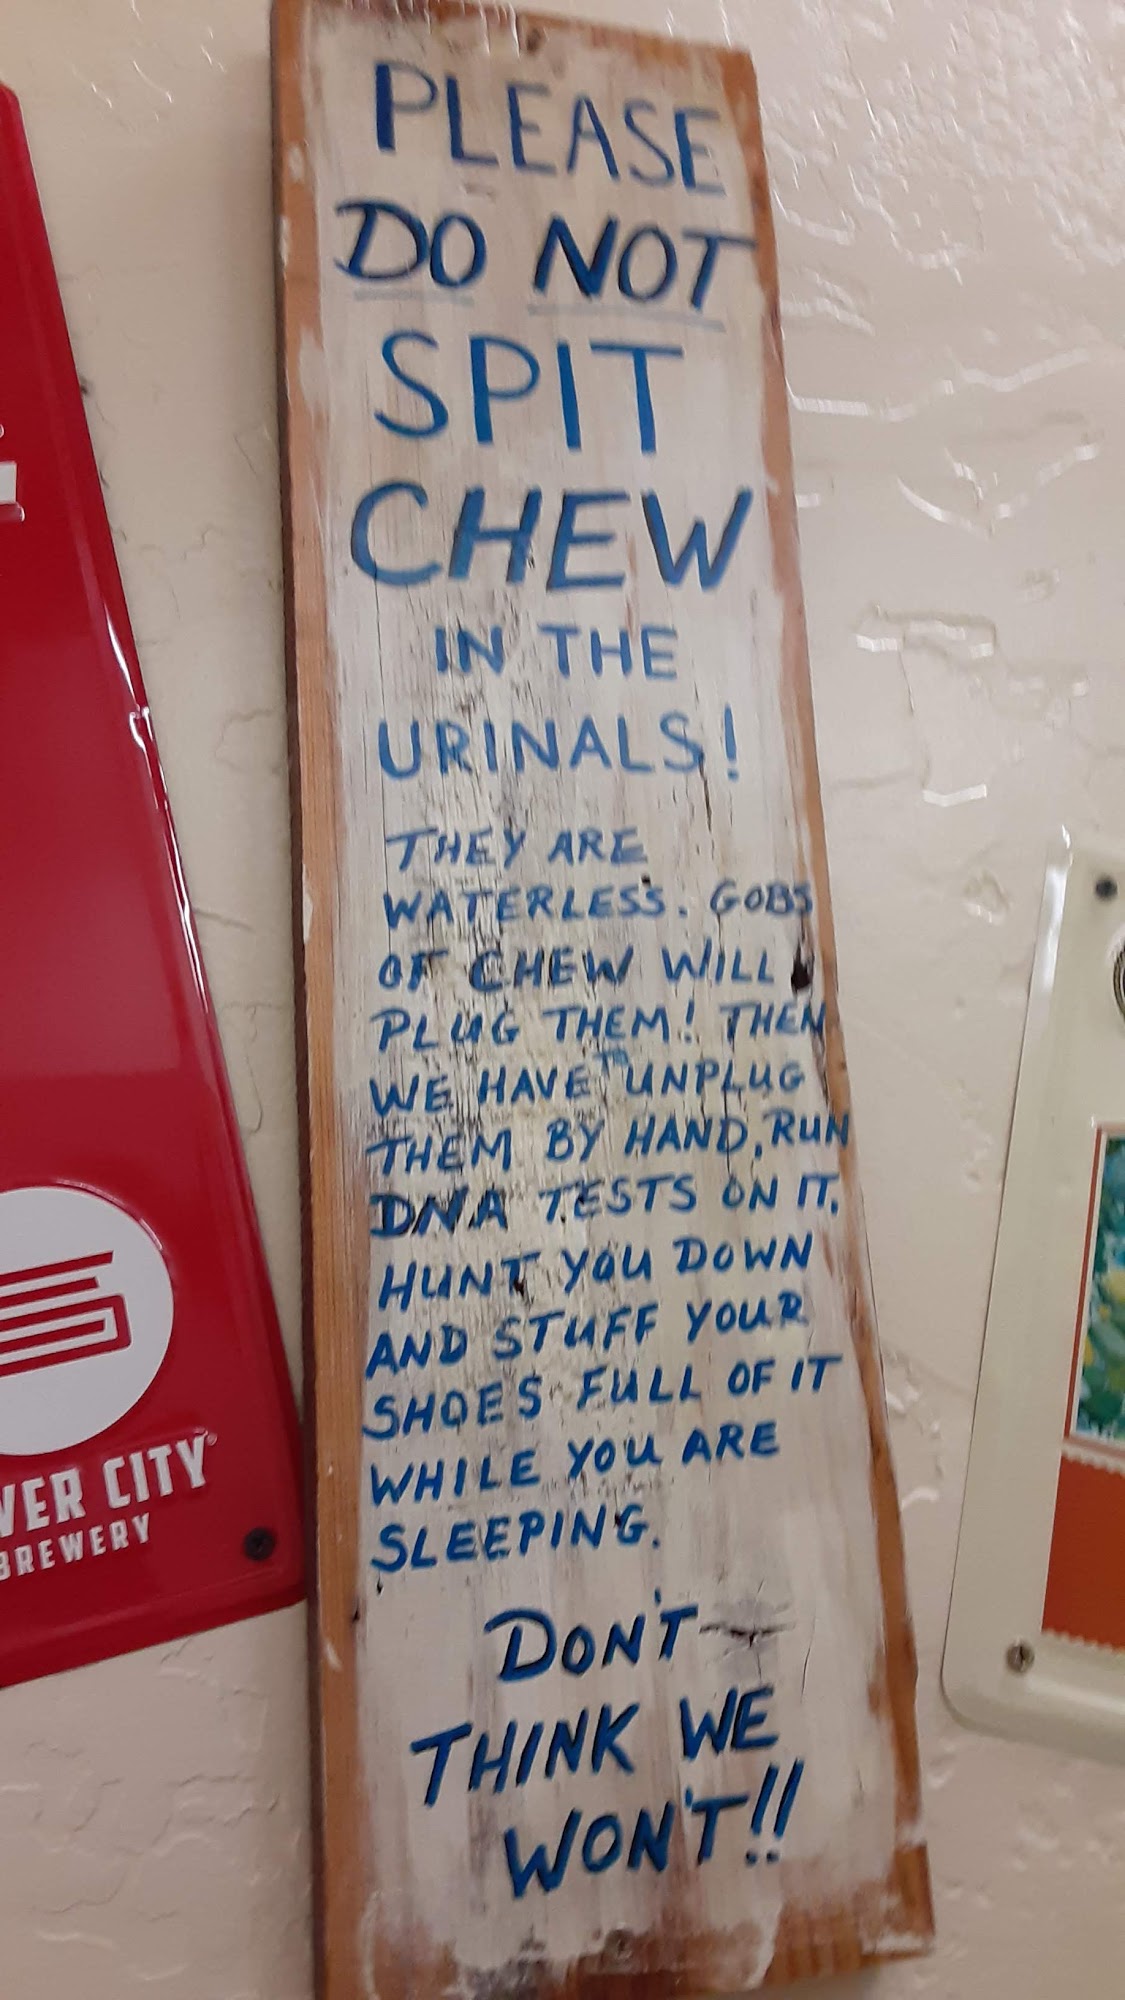 PLEASE
DO NOT
SPIT
CHEW
IN THE
URINALS!
THEY ARE
WATERLESS. GOBS
OF CHEW WILL
PLUG THEM! THEN
WE HAVE TO UNPLUG
THEM BY HAND, RUN
DNA TESTS ON IT,
HUNT YOU DOWN
AND STUFF YOUR
SHOES FULL OF IT
WHILE YOU ARE
SLEEPING.
DON'T
THINK WE
WON'T!!
CITY
BREWERY